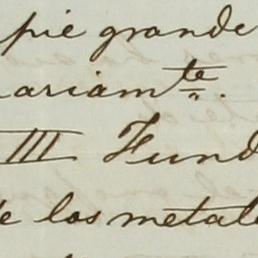 pie grande
ariamte.
III Fund
e los metale